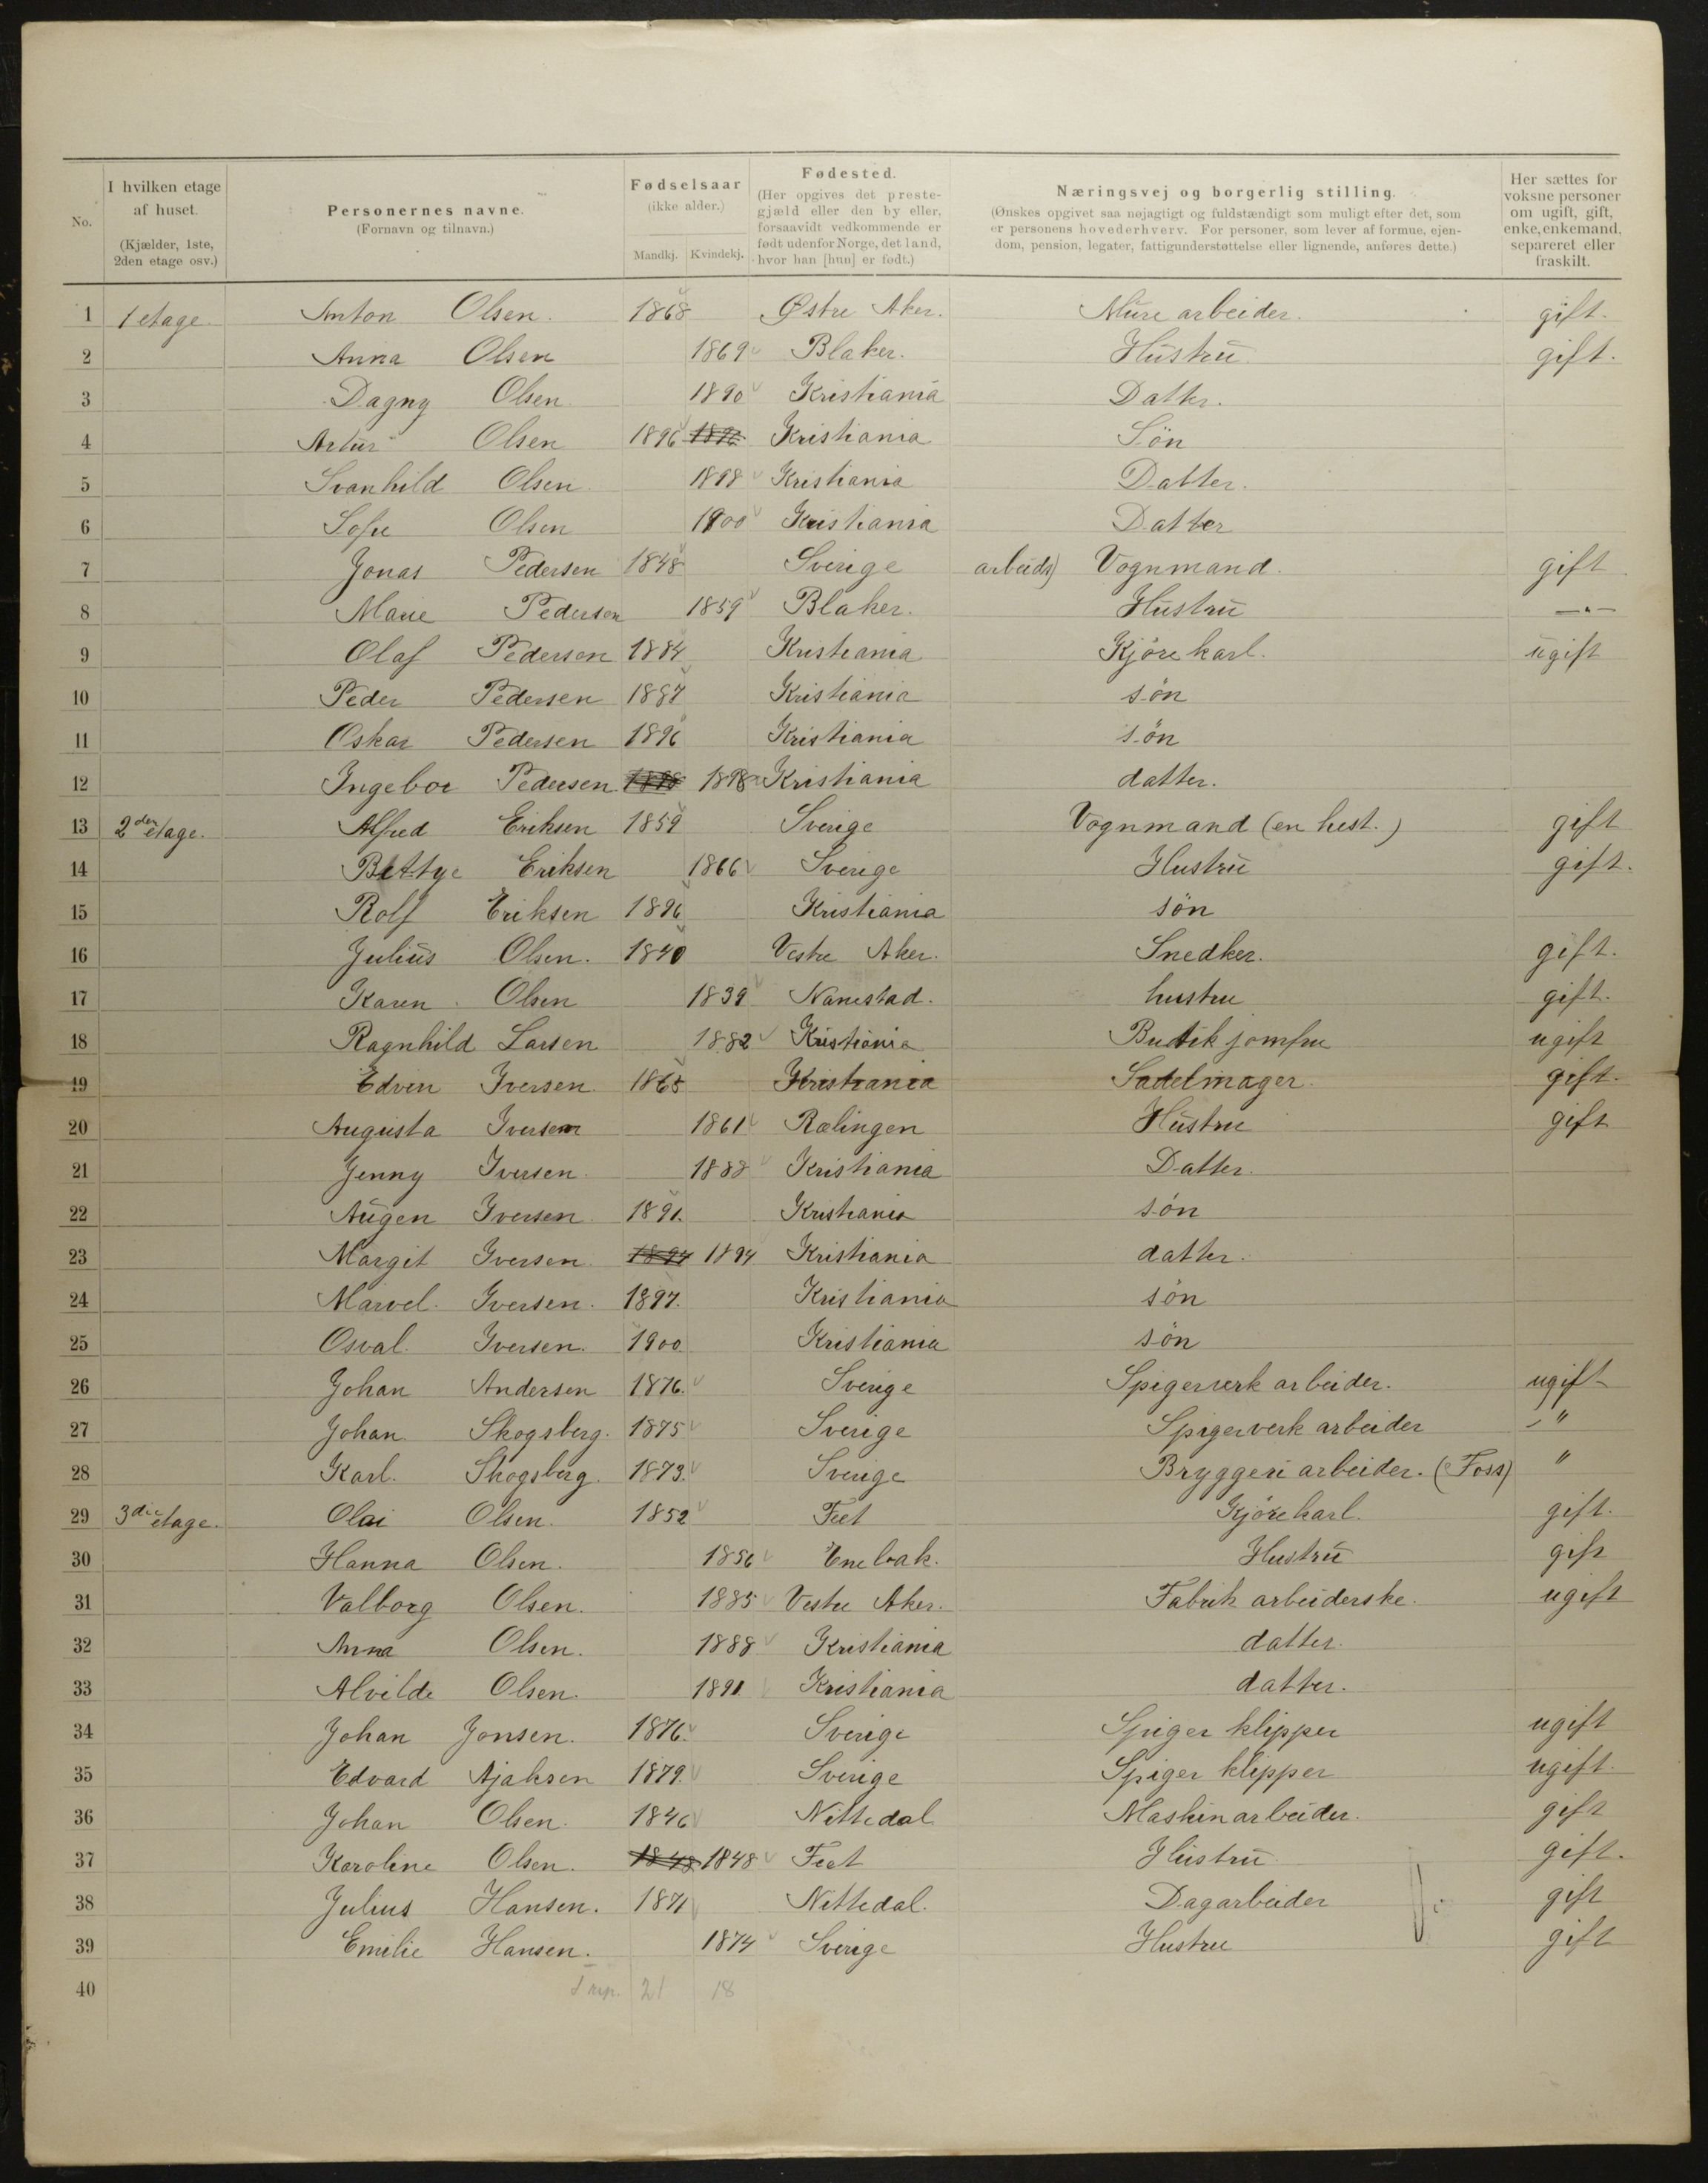 No.
I hvilken etage af huset. (Kjælder, 1ste, 2den etage osv.)
Personernes navne. (Fornavn og tilnavn.)
Fødselsaar (ikke alder.) Mandkj. Kvindekj.
Fødested. (Her opgives det prestegjæld eller den by eller, forsaavidt vedkommende er født udenfor Norge, det land, hvor han [hun] er født.)
Næringsvej og borgerlig stilling. (Ønskes opgivet saa nøjagtigt og fuldstændigt som muligt efter det, som er personens hovederhverv. For personer, som lever af formue, ejendom, pension, legater, fattigunderstøttelse eller lignende, anføres dette.)
Her sættes for voksne personer om ugift, gift, enke, enkemand, separeret eller fraskilt.
1 1 etage. Anton Olsen. 1868 Østre Aker. Mure arbeider. gift.
2 Anna Olsen 1869 Blaker. Hustru gift.
3 Dagny Olsen 1890 Kristiania Datter.
4 Artur Olsen 1896 1896 Kristiania Sön
5 Svanhild Olsen 1898 Kristiania Datter.
6 Sofie Olsen 1900 Kristiania Datter
7 Jonas Pedersen 1848 Sverige arbeids) Vognmand. gift
8 Marie Pedersen 1859 Blaker. Hustru —"—
9 Olaf Pedersen 1884 Kristiania Kjörekarl. ugift
10 Peder Pedersen 1887 Kristiania sön
11 Oskar Pedersen 1896 Kristiania sön
12 Ingebor Pedersen 1898 1898 Kristiania datter.
13 2den etage. Alfred Eriksen 1859 Sverige Vognmand (en hest.) gift
14 Bettye Eriksen 1866 Sverige Hustru gift.
15 Rolf Eriksen 1896 Kristiania sön
16 Julius Olsen. 1840 Vestre Aker. Snedker. gift.
17 Karen Olsen 1839 Nanestad. hustru gift.
18 Ragnhild Larsen 1882 Kristiania Butik jomfru ugift
19 Edvin Iversen. 1865 Kristiania Sadelmager. gift.
20 Augusta Iversen 1861 Rælingen Hustru gift
21 Jenny Iversen. 1888 Kristiania Datter.
22 Augen Iversen 1891. Kristiania sön
23 Margit Iversen. 1894 1894 Kristiania datter.
24 Marvel. Iversen. 1897. Kristiania sön
25 Osval. Iversen. 1900 Kristiania sön
26 Johan Andersen 1876. Sverige Spigerverk arbeider. ugift
27 Johan Skogsberg. 1875 Sverige Spigerverk arbeider "
28 Karl. Skogsberg. 1873. Sverige Bryggeri arbeider. (Foss) "
29 3die etage. Olai Olsen. 1852 Feet Kjörekarl. gift.
30 Hanna Olsen. 1856 Enebak. Hustru gift
31 Valborg Olsen. 1885 Vestre Aker. Fabrik arbeiderske. ugift
32 Anna Olsen. 1888 Kristiania datter.
33 Alvilde Olsen. 1891 Kristiania datter.
34 Johan Jonsen. 1876. Sverige Spiger klipper ugift
35 Edvard Ajaksen 1879. Sverige Spiger klipper ugift.
36 Johan Olsen. 1846 Nittedal Maskinarbeider. gift
37 Karoline Olsen. 1848 1848 Feet Hustru gift.
38 Julius Hansen. 1871 Nittedal. Dagarbeider gift
39 Emilie Hansen. 1874 Sverige Hustru gift
40 21 18